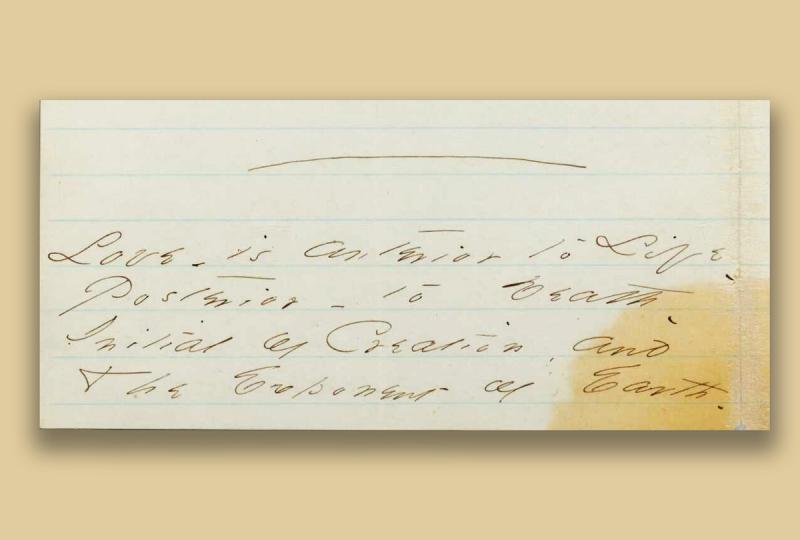 Love - is anterior to Life -
Posterior - to Death -
Initial of Creation, and
The Exponent of Earth -